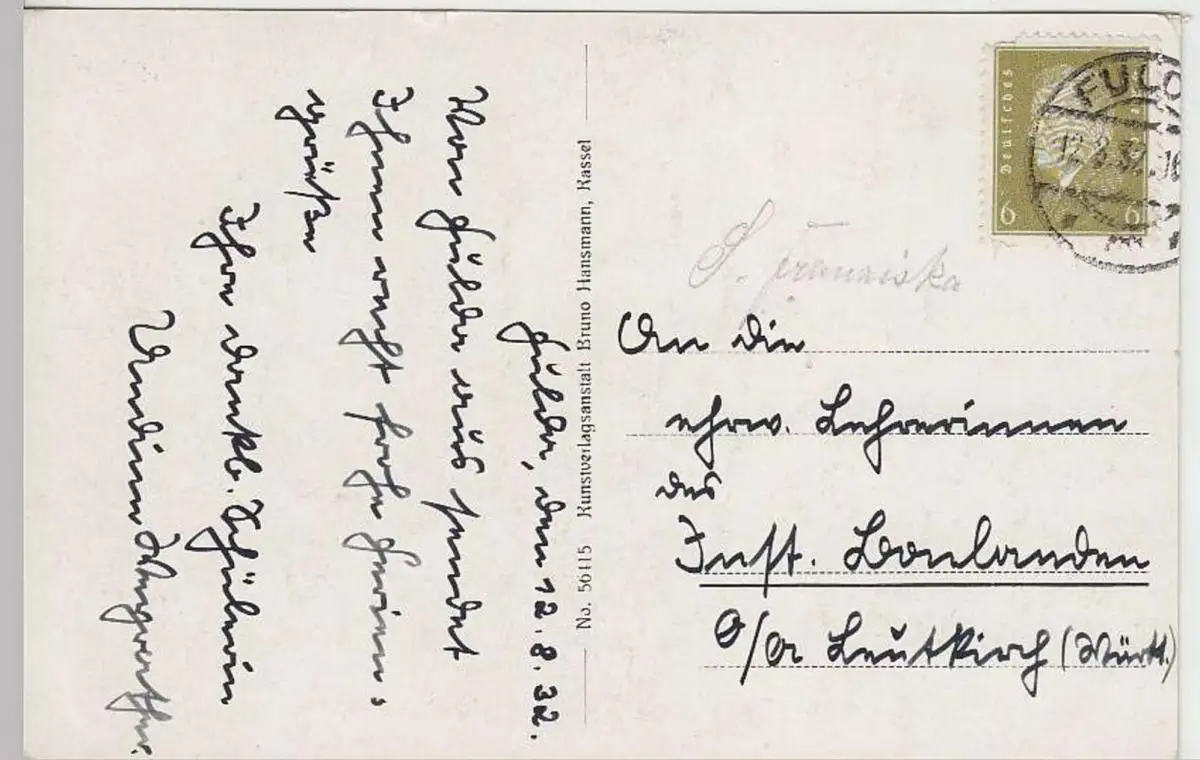 Fulda, den 12.8.32.
Von Fulda aus sendet
Ihnen recht frohe Ferien-
grüße
Ihre dankb. Schülerin
No. 56115 Kunstverlagsanstalt Bruno Hansmann, Kassel
Deutsches
6 6
FULD
S. Franziska
An die
ehrw. Lehrerinnen
des
Inst. Bonlanden
O/A Leutkirch (Württ.)